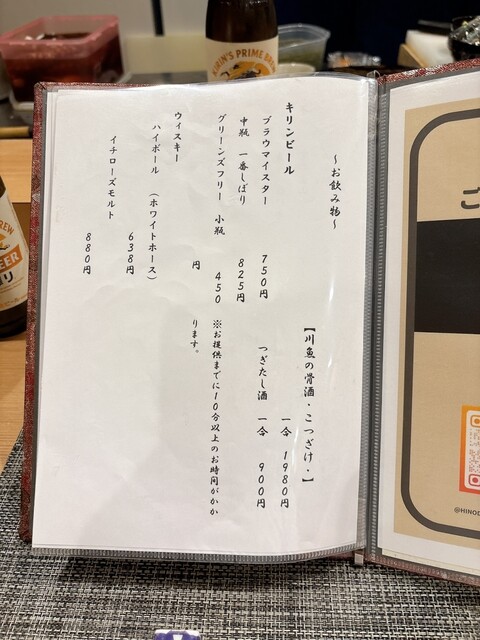 ～お飲み物～
キリンビール
ブラウマイスター 750円
中瓶 一番しぼり 825円
グリーンズフリー 小瓶 450
円
ウィスキー
ハイボール （ホワイトホース）
638円
イチローズモルト
880円
【川魚の骨酒・こつざけ・】
一合 1980円
つぎたし酒 一合 900円
※お提供までに10分以上のお時間がかか
ります。
KIRIN'S PRIME BREW
BEER
ご